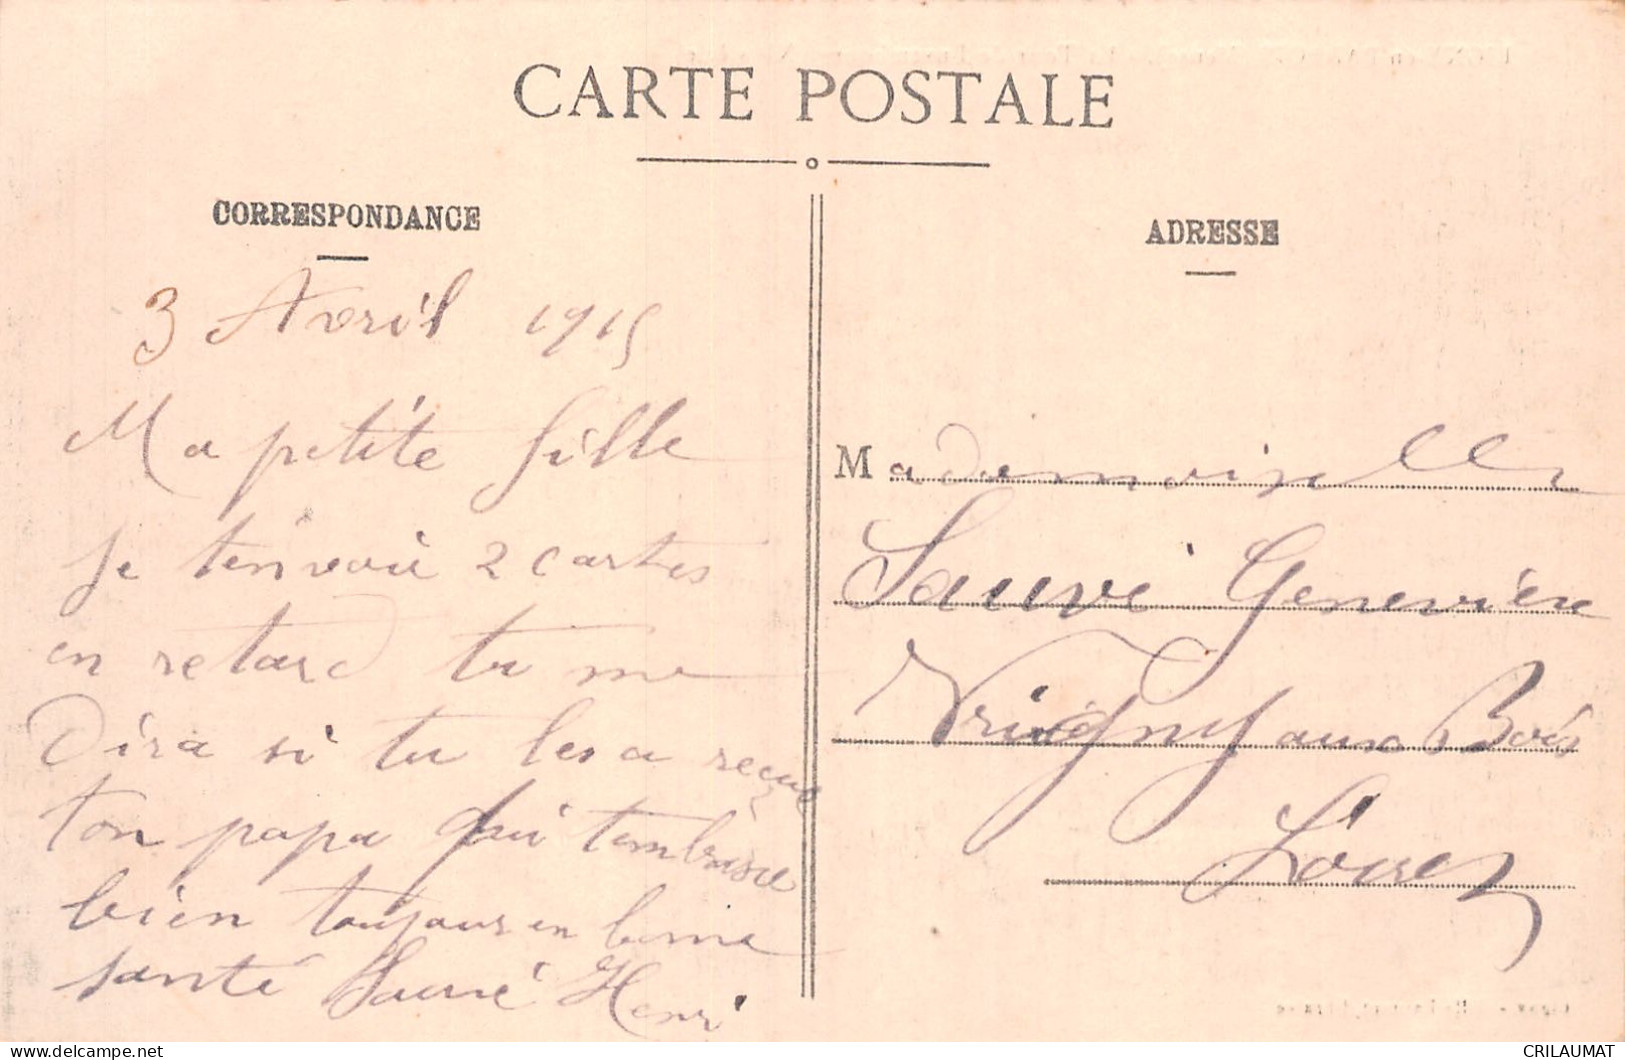 CARTE POSTALE
CORRESPONDANCE
3 Avril 1915
Ma petite fille
Je tenvoie 2 cartes
en retard tu me
Dira si tu les a reçue
ton papa qui tembrasse
bien toujour en bonne
santé Sauvé Henri
ADRESSE
Mademoiselle
Sauvé Geneviève
Vrigny aux Bois
Loiret
CRILAUMAT